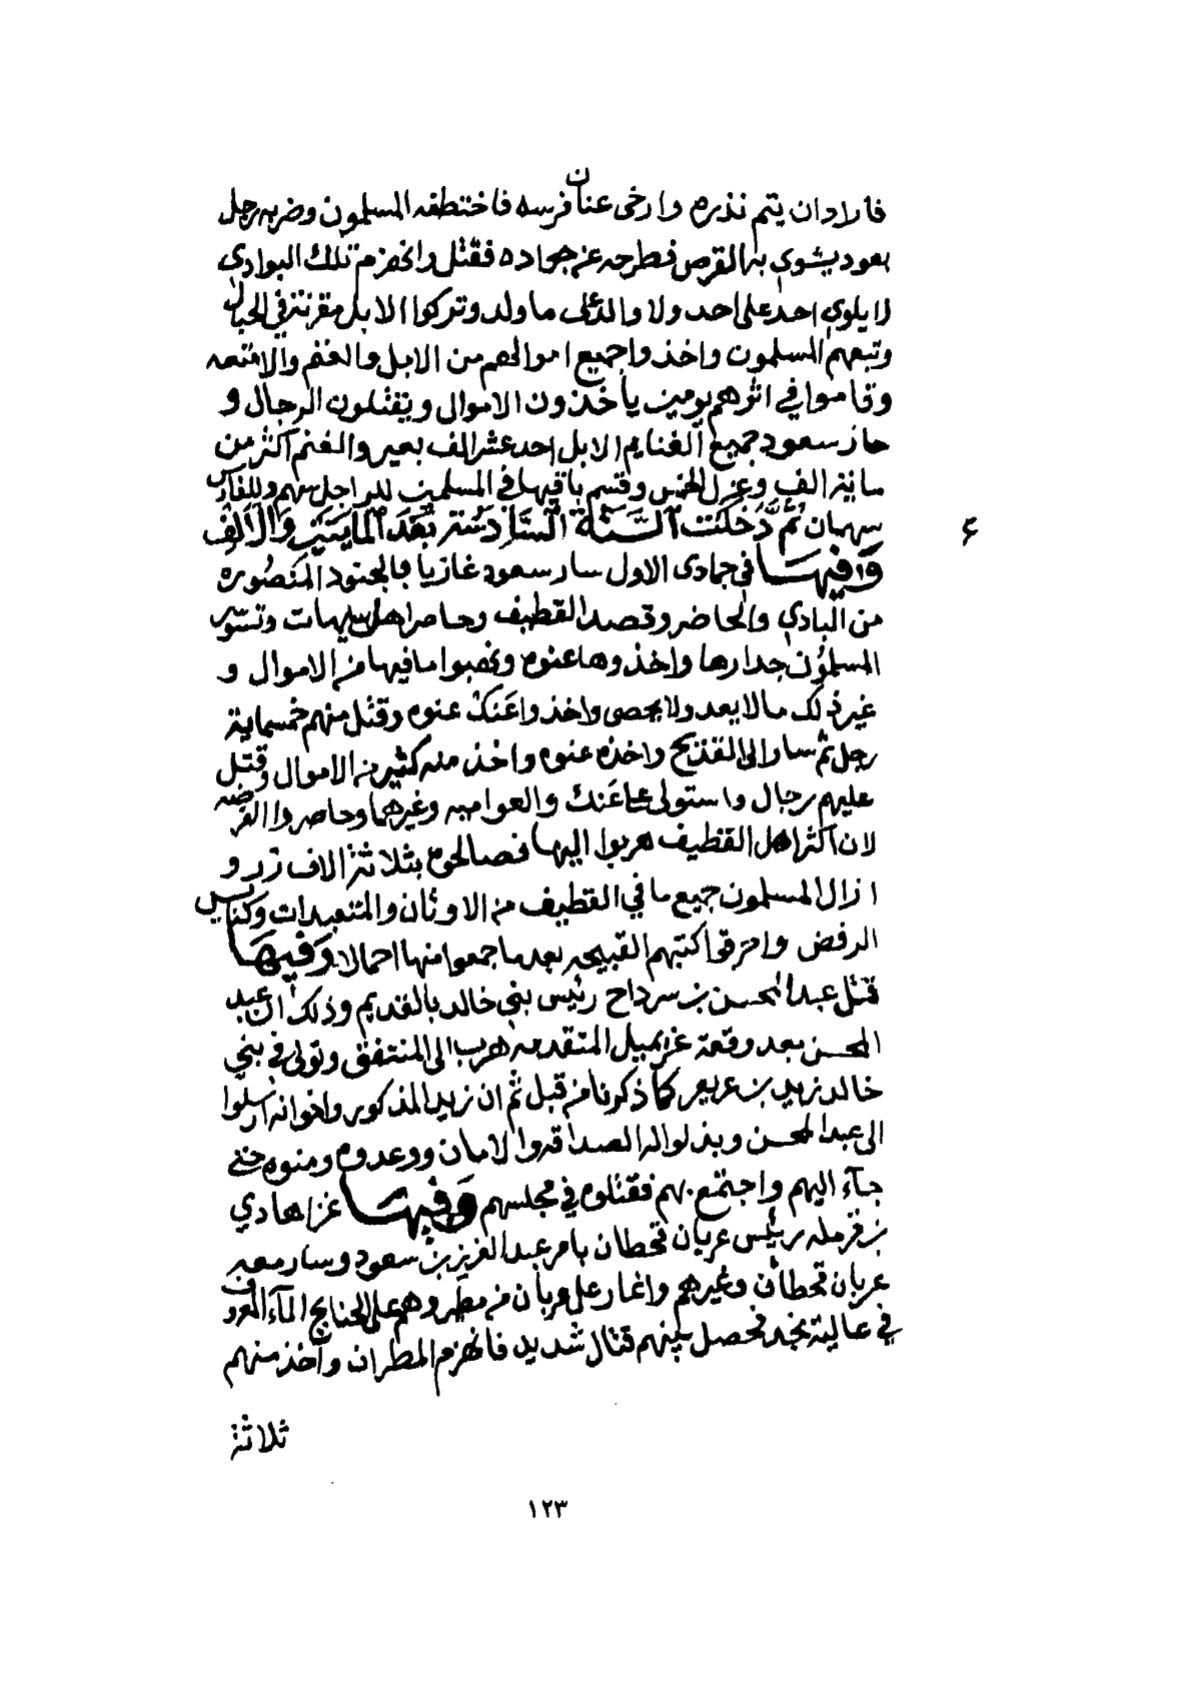 فاراد ان يتم نذره وارخى عنان فرسه فاختطفه المسلمون وضربه رجل
بعود يشوي به القرص فطرحه عن جواده فقتل وانهزم تلك البوادي
لا يلوي احد على احد ولا والد على ما ولد وتركوا الابل مقرنة في الحبال
وتبعهم المسلمون واخذوا جميع اموالهم من الابل والغنم والامتعه
وقاموا في اثرهم يومين ياخذون الاموال ويقتلون الرجال و
حاز سعود جميع الغنايم الابل احد عشر الف بعير والغنم اكثر من
ماية الف وعزل الخمس وقسم باقيها في المسلمين للراجل سهم وللفارس
سهمان ثُمَّ دَخَلَتْ السَّنَةُ السَّادِسَة بَعْدَ المايَتَيْنِ وَالْأَلْفِ
۶
وَفيهَا في جمادى الاول سار سعود غازيا بالجنود المنصوره
من البادي والحاضر وقصد القطيف وحاصر اهل سيهات وتسور
المسلمون جدارها واخذوها عنوه ونهبوا ما فيها من الاموال و
غير ذلك ما لا يعد ولا يحصى واخذوا عَنك عنوه وقتل منهم خمسماية
رجل ثم سار الى القديح واخذه عنوه واخذ منه كثير من الاموال وقتل
عليهم رجال واستولى على عَنك والعواميه وغيرهما وحاصروا الفرضه
لان اكثر اهل القطيف هربوا اليها فصالحوه بثلاثة الاف زر و
ازال المسلمون جميع ما في القطيف من الاوثان والمتعبدات وكنايس
الرفض واحرقوا كتبهم القبيحه بعد ما جمعوا منها احمالا وَفيهَا
قتل عبد المحسن بن سرداح رئيس بني خالد بالقديم وذلك ان عبد
المحسن بعد وقعة غريميل المتقدمه هرب الى المنتفق وتولى في بني
خالد زيد بن عريعر كما ذكرنا من قبل ثم ان زيد المذكور واخوانه ارسلوا
الى عبد المحسن وبذلوا له الصداقه والامان ووعدوه ومنوه حتى
جآء اليهم واجتمع بهم فقتلوه في مجلسهم وَفيهَا غزا هادي
بن قرمله رئيس عربان قحطان بامر عبد العزيز بن سعود وسار معه
عربان قحطان وغيرهم واغار على عربان من مطير وهم على الجنايح المآء المعروف
في عالية نجد فحصل بينهم قتال شديد فانهزم المطران واخذ منهم
ثلاثة
١٢٣